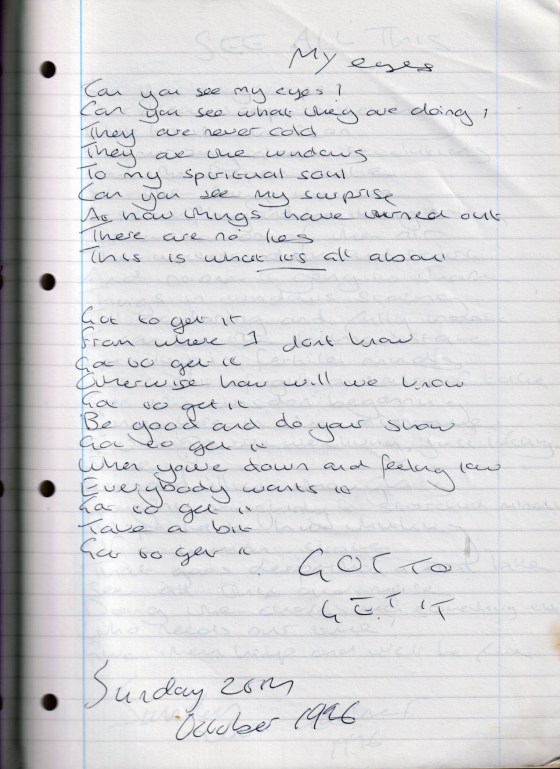 My eyes
Can you see my eyes?
Can you see what they are doing?
They are never cold
They are the windows
To my spiritual soul
Can you see my surprise
At how things have turned out
There are no lies
This is what its all about
Got to get it
From where I dont know
Got to get it
Otherwise how will we know
Got to get it
Be good and do your show
Got to get it
When youve down and feeling low
Everybody wants it
Got to get it
Take a bit
Got to get it
GOT TO
GET IT
Sunday 20th
October 1996